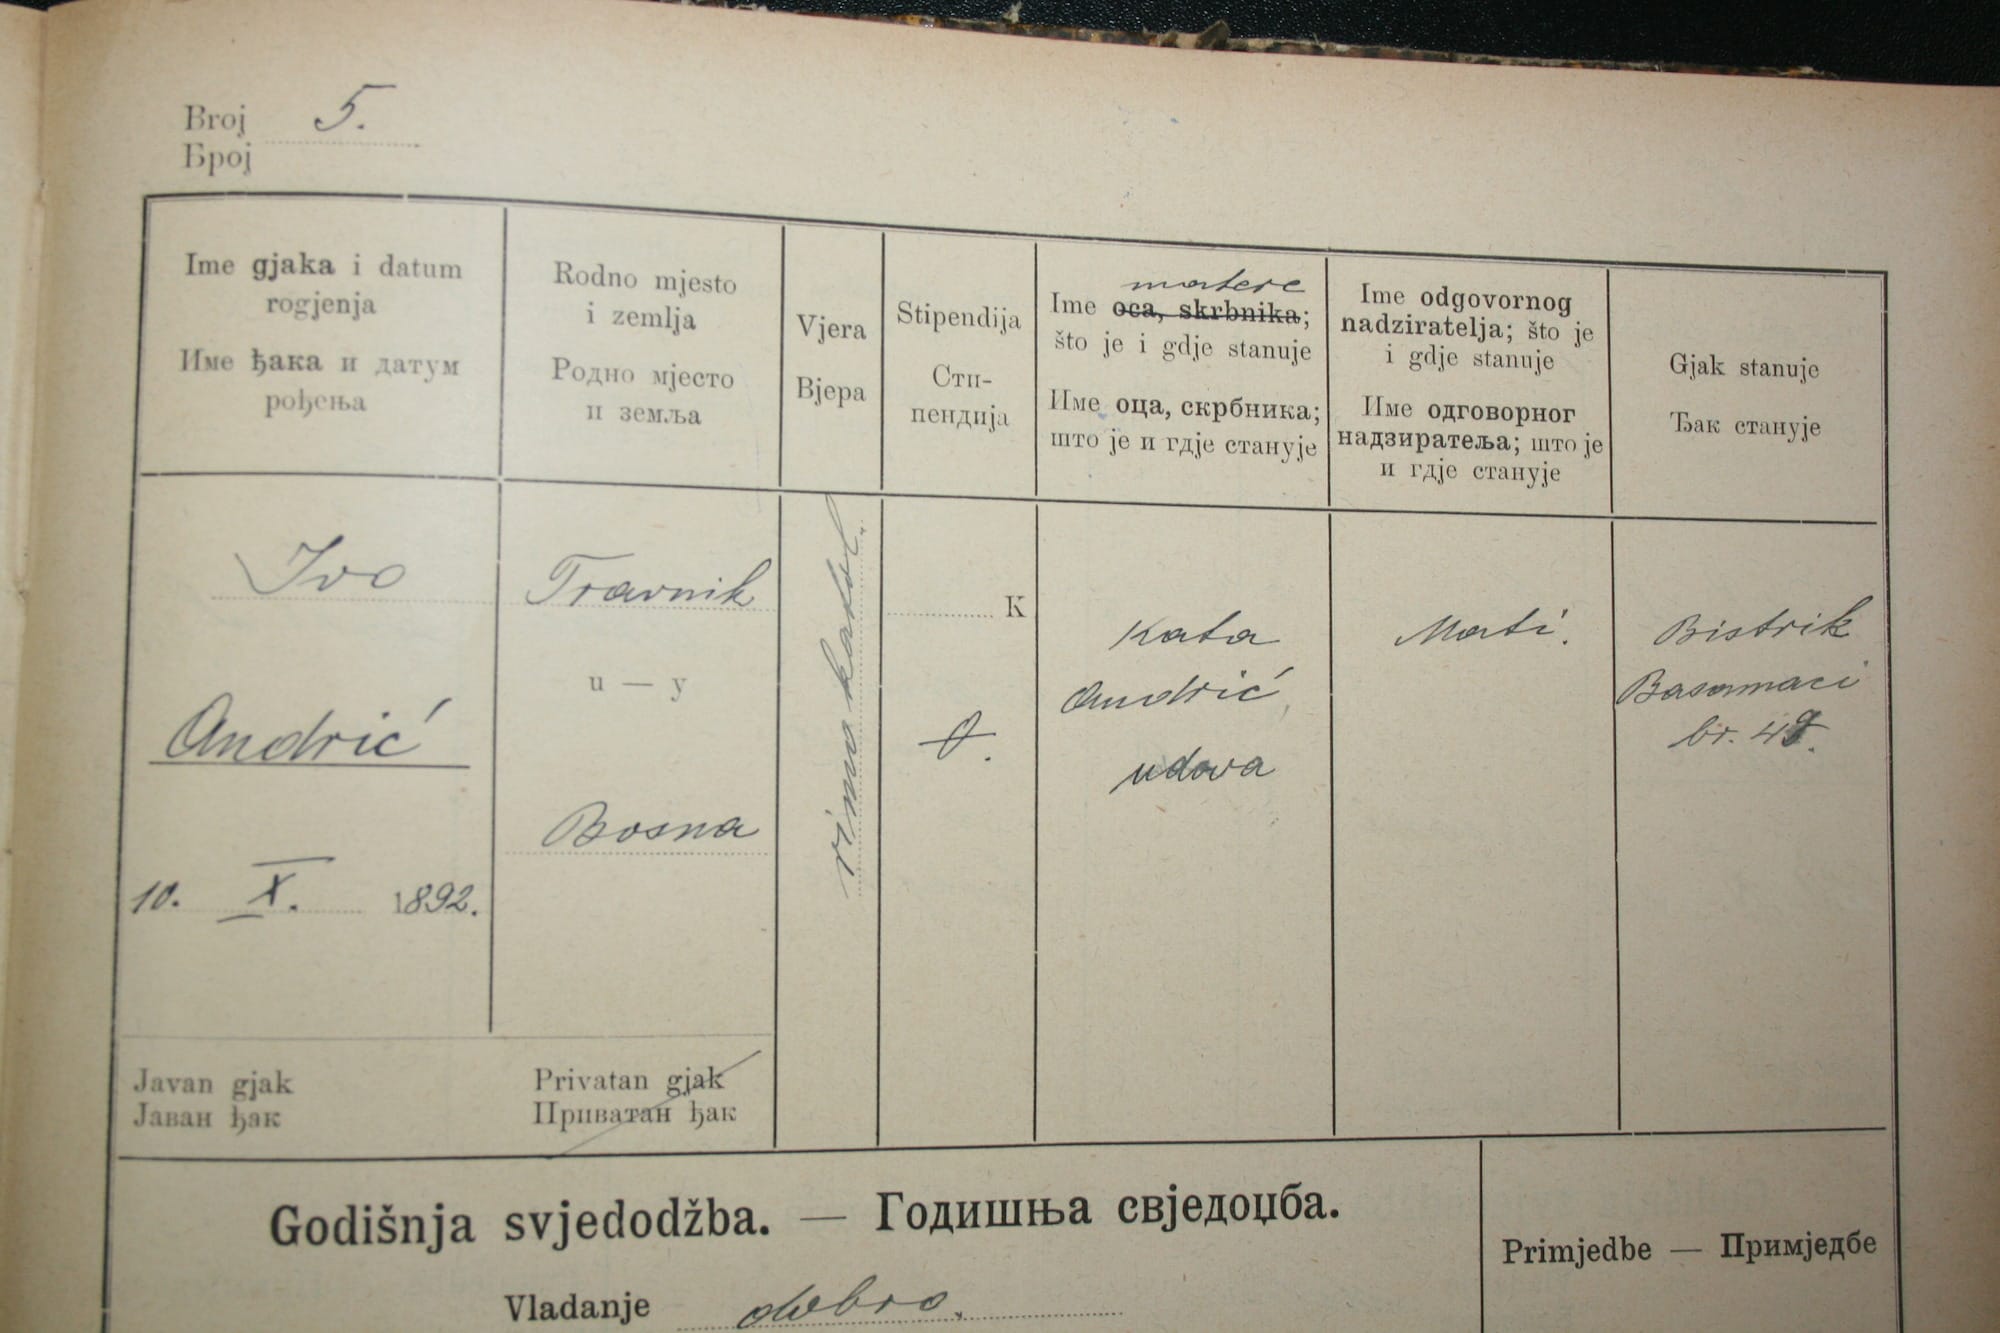 Broj 5.
Број
Ime gjaka i datum
rogjenja
Име ђака и датум
рођења
Rodno mjesto
i zemlja
Родно мјесто
и земља
Vjera
Вјера
Stipendija
Сти-
пендија
matere
Ime oca, skrbnika;
što je i gdje stanuje
Име оца, скрбника;
што је и гдје станује
Ime odgovornog
nadziratelja; što je
i gdje stanuje
Име одговорног
надзиратеља; што је
и гдје станује
Gjak stanuje
Ђак станује
Ivo
Andrić
10. X. 1892.
Travnik
u — у
Bosna
rimo katol.
K
0.
Kata
Andrić,
udova
Mati.
Bistrik
Basamaci
br.
Javan gjak
Јаван ђак
Privatan gjak
Приватан ђак
Godišnja svjedodžba. — Годишња свједоџба.
Primjedbe — Примједбе
Vladanje dobro.